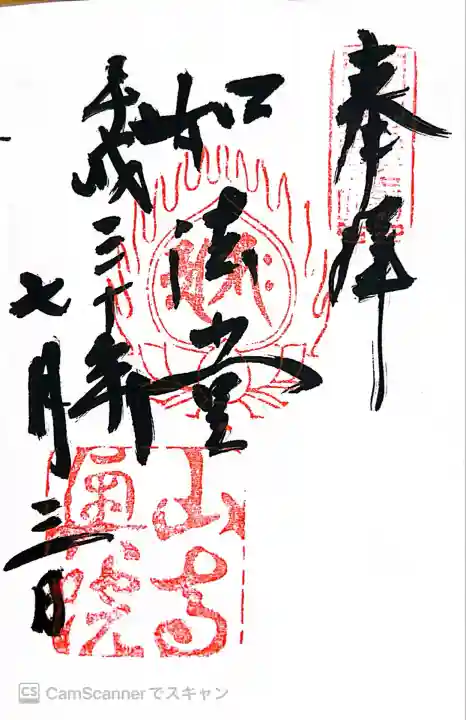 奉拝
如法堂
平成三十年
七月三日
山寺
CS CamScannerでスキャン